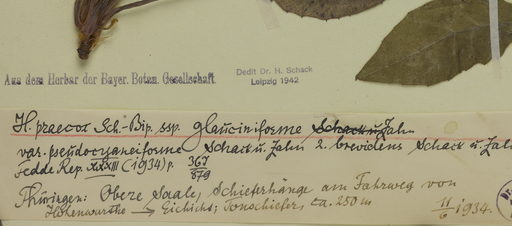 Aus dem Herbar der Bayer. Botan. Gesellschaft.
Dedit Dr. H. Schack
Leipzig 1942
H. praecox Sch.-Bip. ssp. glauciniforme Schack u. Zahn
var. pseudocyaneiforme Schack u. Zahn 2. brevidens Schack u. Zahn
Fedde Rep. XXXIII (1934) p. 367
879
Thüringen: Obere Saale, Schieferhänge am Fahrweg von
Hohenwarthe → Eichicht; Tonschiefer, ca. 250 m
11/6 1934.